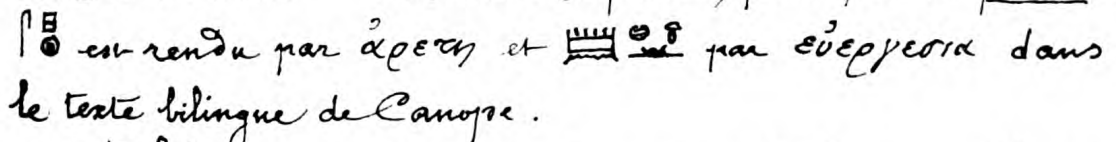 est rendu par ἀρετη et par εὐεργεσια dans
le texte bilingue de Canope.